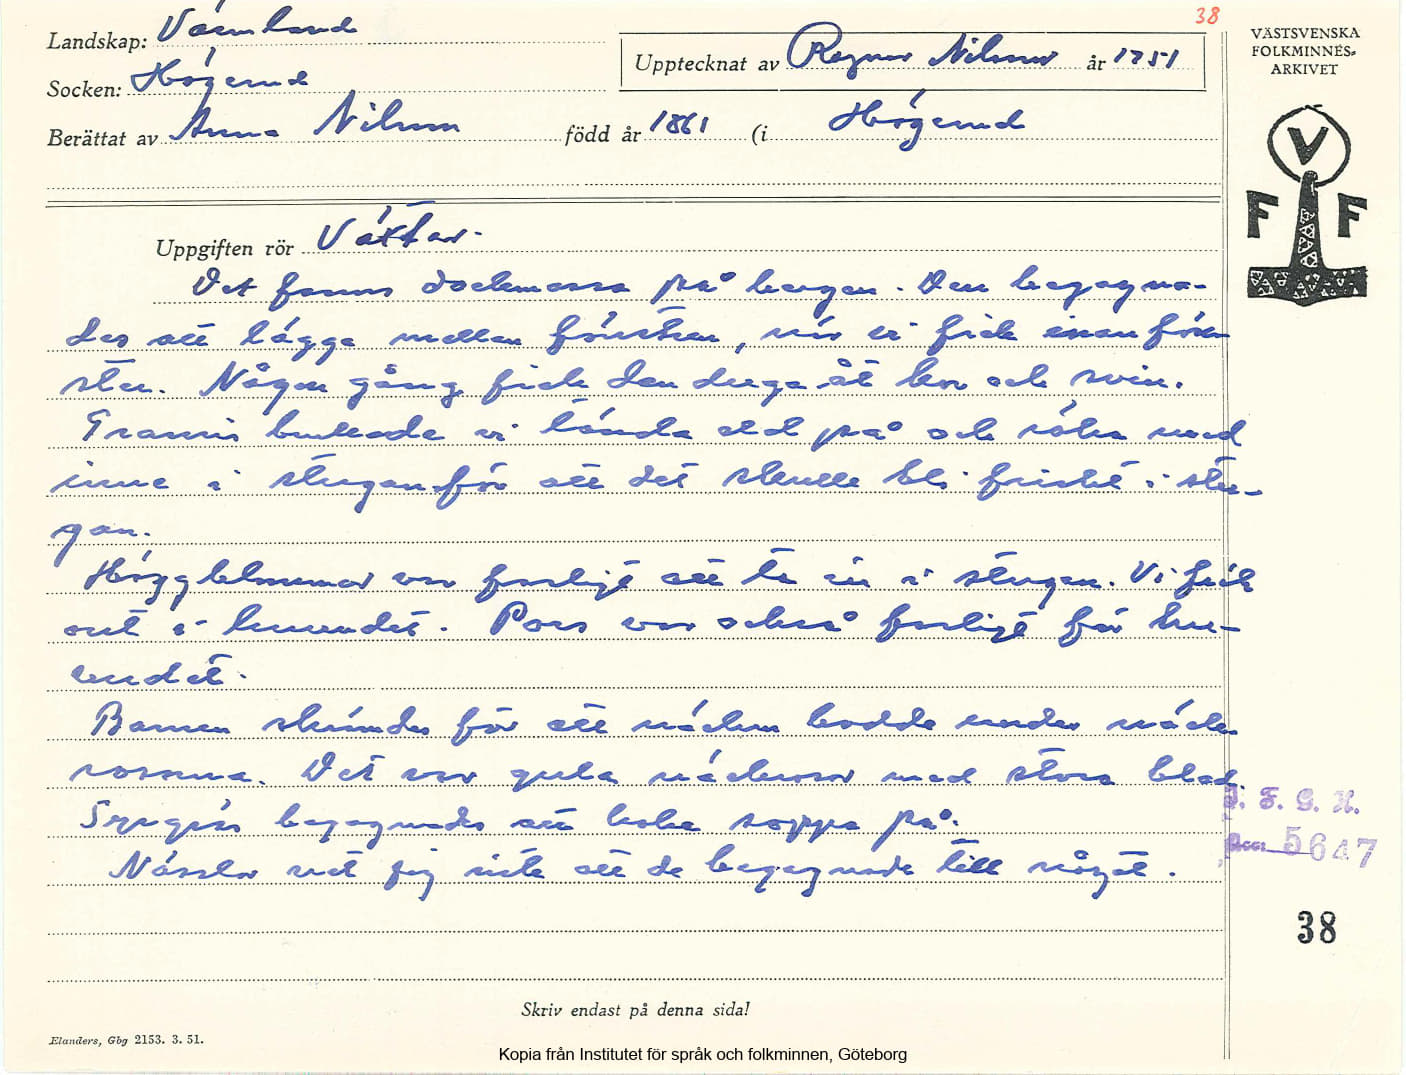 38
VÄSTSVENSKA
FOLKMINNES-
ARKIVET
V
F F
Landskap: Värmland
Upptecknat av Ragnar Nilsson år 1951
Socken: Högerud
Berättat av Anna Nilsson född år 1861 (i Högerud
Uppgiften rör Växter.
Det fanns dockmossa på bergen. Den begagna-
des att lägga mellan fönstren, när vi fick innanfön-
ster. Någon gång fick den duga åt kor och svin.
Granris brukade vi tända eld på och röka med
inne i stugan för att det skulle bli friskt i stu-
gan.
Häggblommor var farligt att ta in i stugan. Vi fick
ont i huvudet. Pors var också farligt för hu-
vudet.
Barnen skrämdes för att näcken bodde under näck-
rosorna. Det var gula näckrosor med stora blad.
Syrgräs begagnades att koka soppa på.
Nässlor vet jag inte att de begagnade till något.
I. F. G. H.
Acc: 5647
38
Skriv endast på denna sida!
Elanders, Gbg 2153. 3. 51.
Kopia från Institutet för språk och folkminnen, Göteborg